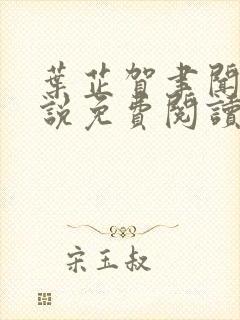 葉芷賀聿聞
說免費閱讀
宋玉叔